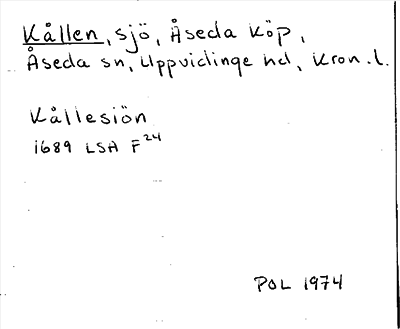 Kållen, sjö, Åseda köp,
Åseda sn, Uppvidinge hd, Kron.l.
Kållesiön
1689 LSA F24
POL 1974